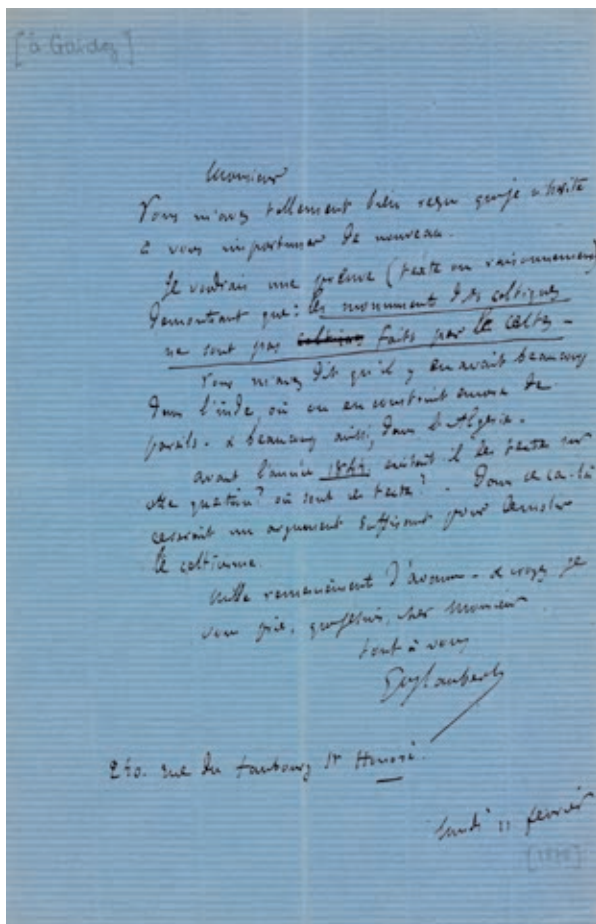 [à Gaidoz]
Monsieur
Vous m'avez tellement bien reçu que je n'hésite
à vous importuner de nouveau.
Je voudrais une preuve (texte ou raisonnement)
démontrant que : les monuments dits celtiques
ne sont pas celtiques faits par les celtes -
Vous m'avez dit qu'il y en avait beaucoup
dans l'inde, où on en construit encore de
pareils - & beaucoup aussi, dans l'Algérie -
avant l'année existait il des textes sur
cette question? où sont ces textes? - Dans ce cas-là
ce serait un argument suffisant pour démolir
le celticisme.
Mille remerciements d'avance - & croyez je
vous prie, que je suis, cher Monsieur
tout à vous
GFlaubert
240. rue du faubourg St Honoré.
Lundi 11 février
[1878]